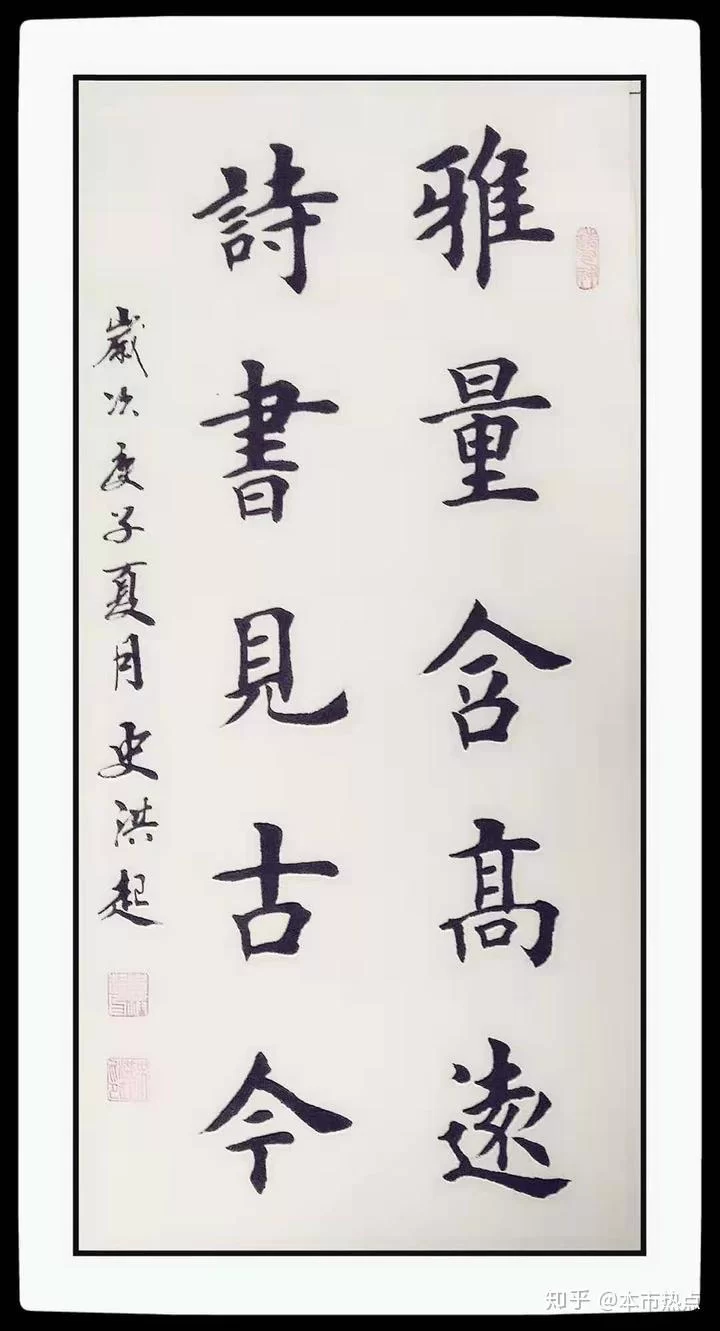 雅量含高遠
詩書見古今
歲次庚子夏月史洪起
知乎 @本市热点